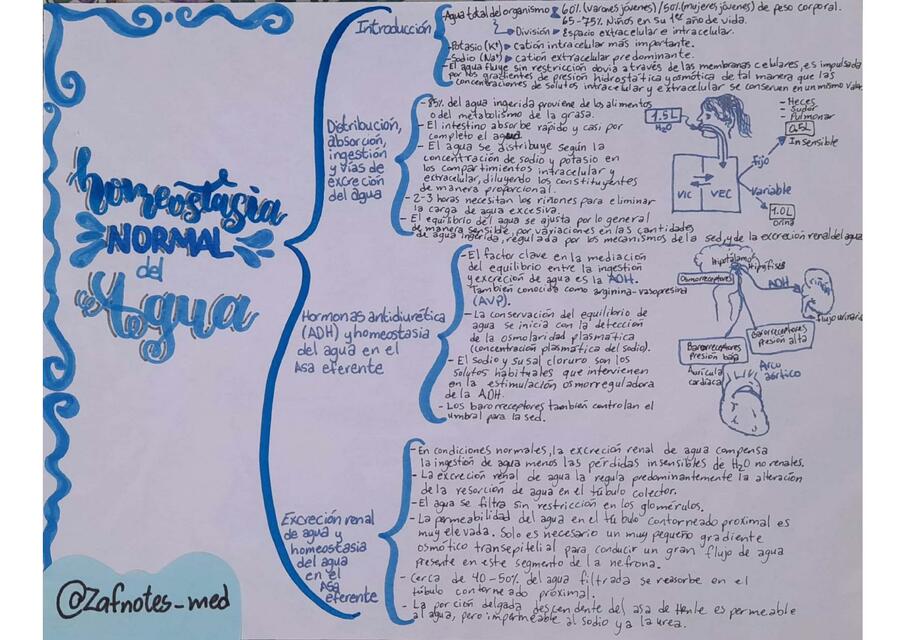 homeostasia
NORMAL
del
Agua
@Zafnotes_med
Introducción
Agua total del organismo 60% (varones jóvenes) / 50% (mujeres jóvenes) de peso corporal.
65-75% Niños en su 1er año de vida.
División Espacio extracelular e intracelular.
-Potasio (K+) catión intracelular más importante.
-Sodio (Na+) catión extracelular predominante.
-El agua fluye sin restricción obvia a través de las membranas celulares, es impulsada
por los gradientes de presión hidrostática y osmótica de tal manera que las
concentraciones de solutos intracelular y extracelular se conserven en un mismo valor
Distribución,
absorción,
ingestión
y vías de
excreción
del agua
- 85% del agua ingerida proviene de los alimentos
o del metabolismo de la grasa.
- El intestino absorbe rápido y casi por
completo el agua.
- El agua se distribuye según la
concentración de sodio y potasio en
los compartimientos intracelular y
extracelular, diluyendo los constituyentes
de manera proporcional.
- 2-3 horas necesitan los riñones para eliminar
la carga de agua excesiva.
- El equilibrio del agua se ajusta por lo general
de manera sensible, por variaciones en las cantidades
de agua ingerida, regulada por los mecanismos de la sed, y de la excreción renal del agua
1.5L
H₂O
VIC
VEC
- Heces
- Sudor
- Pulmonar
0.5L
Insensible
fijo
Variable
1.0L
Orina
Hormonas antidiurética
(ADH) y homeostasia
del agua en el
Asa eferente
-El factor clave en la mediación
del equilibrio entre la ingestión
y excreción de agua es la ADH.
También conocida como arginina-vasopresina
(AVP).
-La conservación del equilibrio de
agua se inicia con la detección
de la osmolaridad plasmática
(concentración plasmática del sodio).
- El sodio y su sal cloruro son los
solutos habituales que intervienen
en la estimulación osmorreguladora
de la ADH.
- Los barorreceptores también controlan el
umbral para la sed.
Hipotálamo
Hipófisis
Osmorreceptores
ADH
riñón
flujo urinario
Barorreceptores
Presión baja
Barorreceptores
presión alta
Aurícula
cardíaca
Arco
aórtico
Excreción renal
de agua y
homeostasia
del agua
en el
Asa
eferente
-En condiciones normales, la excreción renal de agua compensa
la ingestión de agua menos las pérdidas insensibles de H₂O no renales.
-La excreción renal de agua la regula predominantemente la alteración
de la resorción de agua en el túbulo colector.
-El agua se filtra sin restricción en los glomérulos.
-La permeabilidad del agua en el túbulo contorneado proximal es
muy elevada. Solo es necesario un muy pequeño gradiente
osmótico transepitelial para conducir un gran flujo de agua
presente en este segmento de la nefrona.
- Cerca de 40-50% del agua filtrada se reabsorbe en el
túbulo contorneado proximal.
- La porción delgada descendente del asa de Henle es permeable
al agua, pero impermeable al sodio y a la urea.